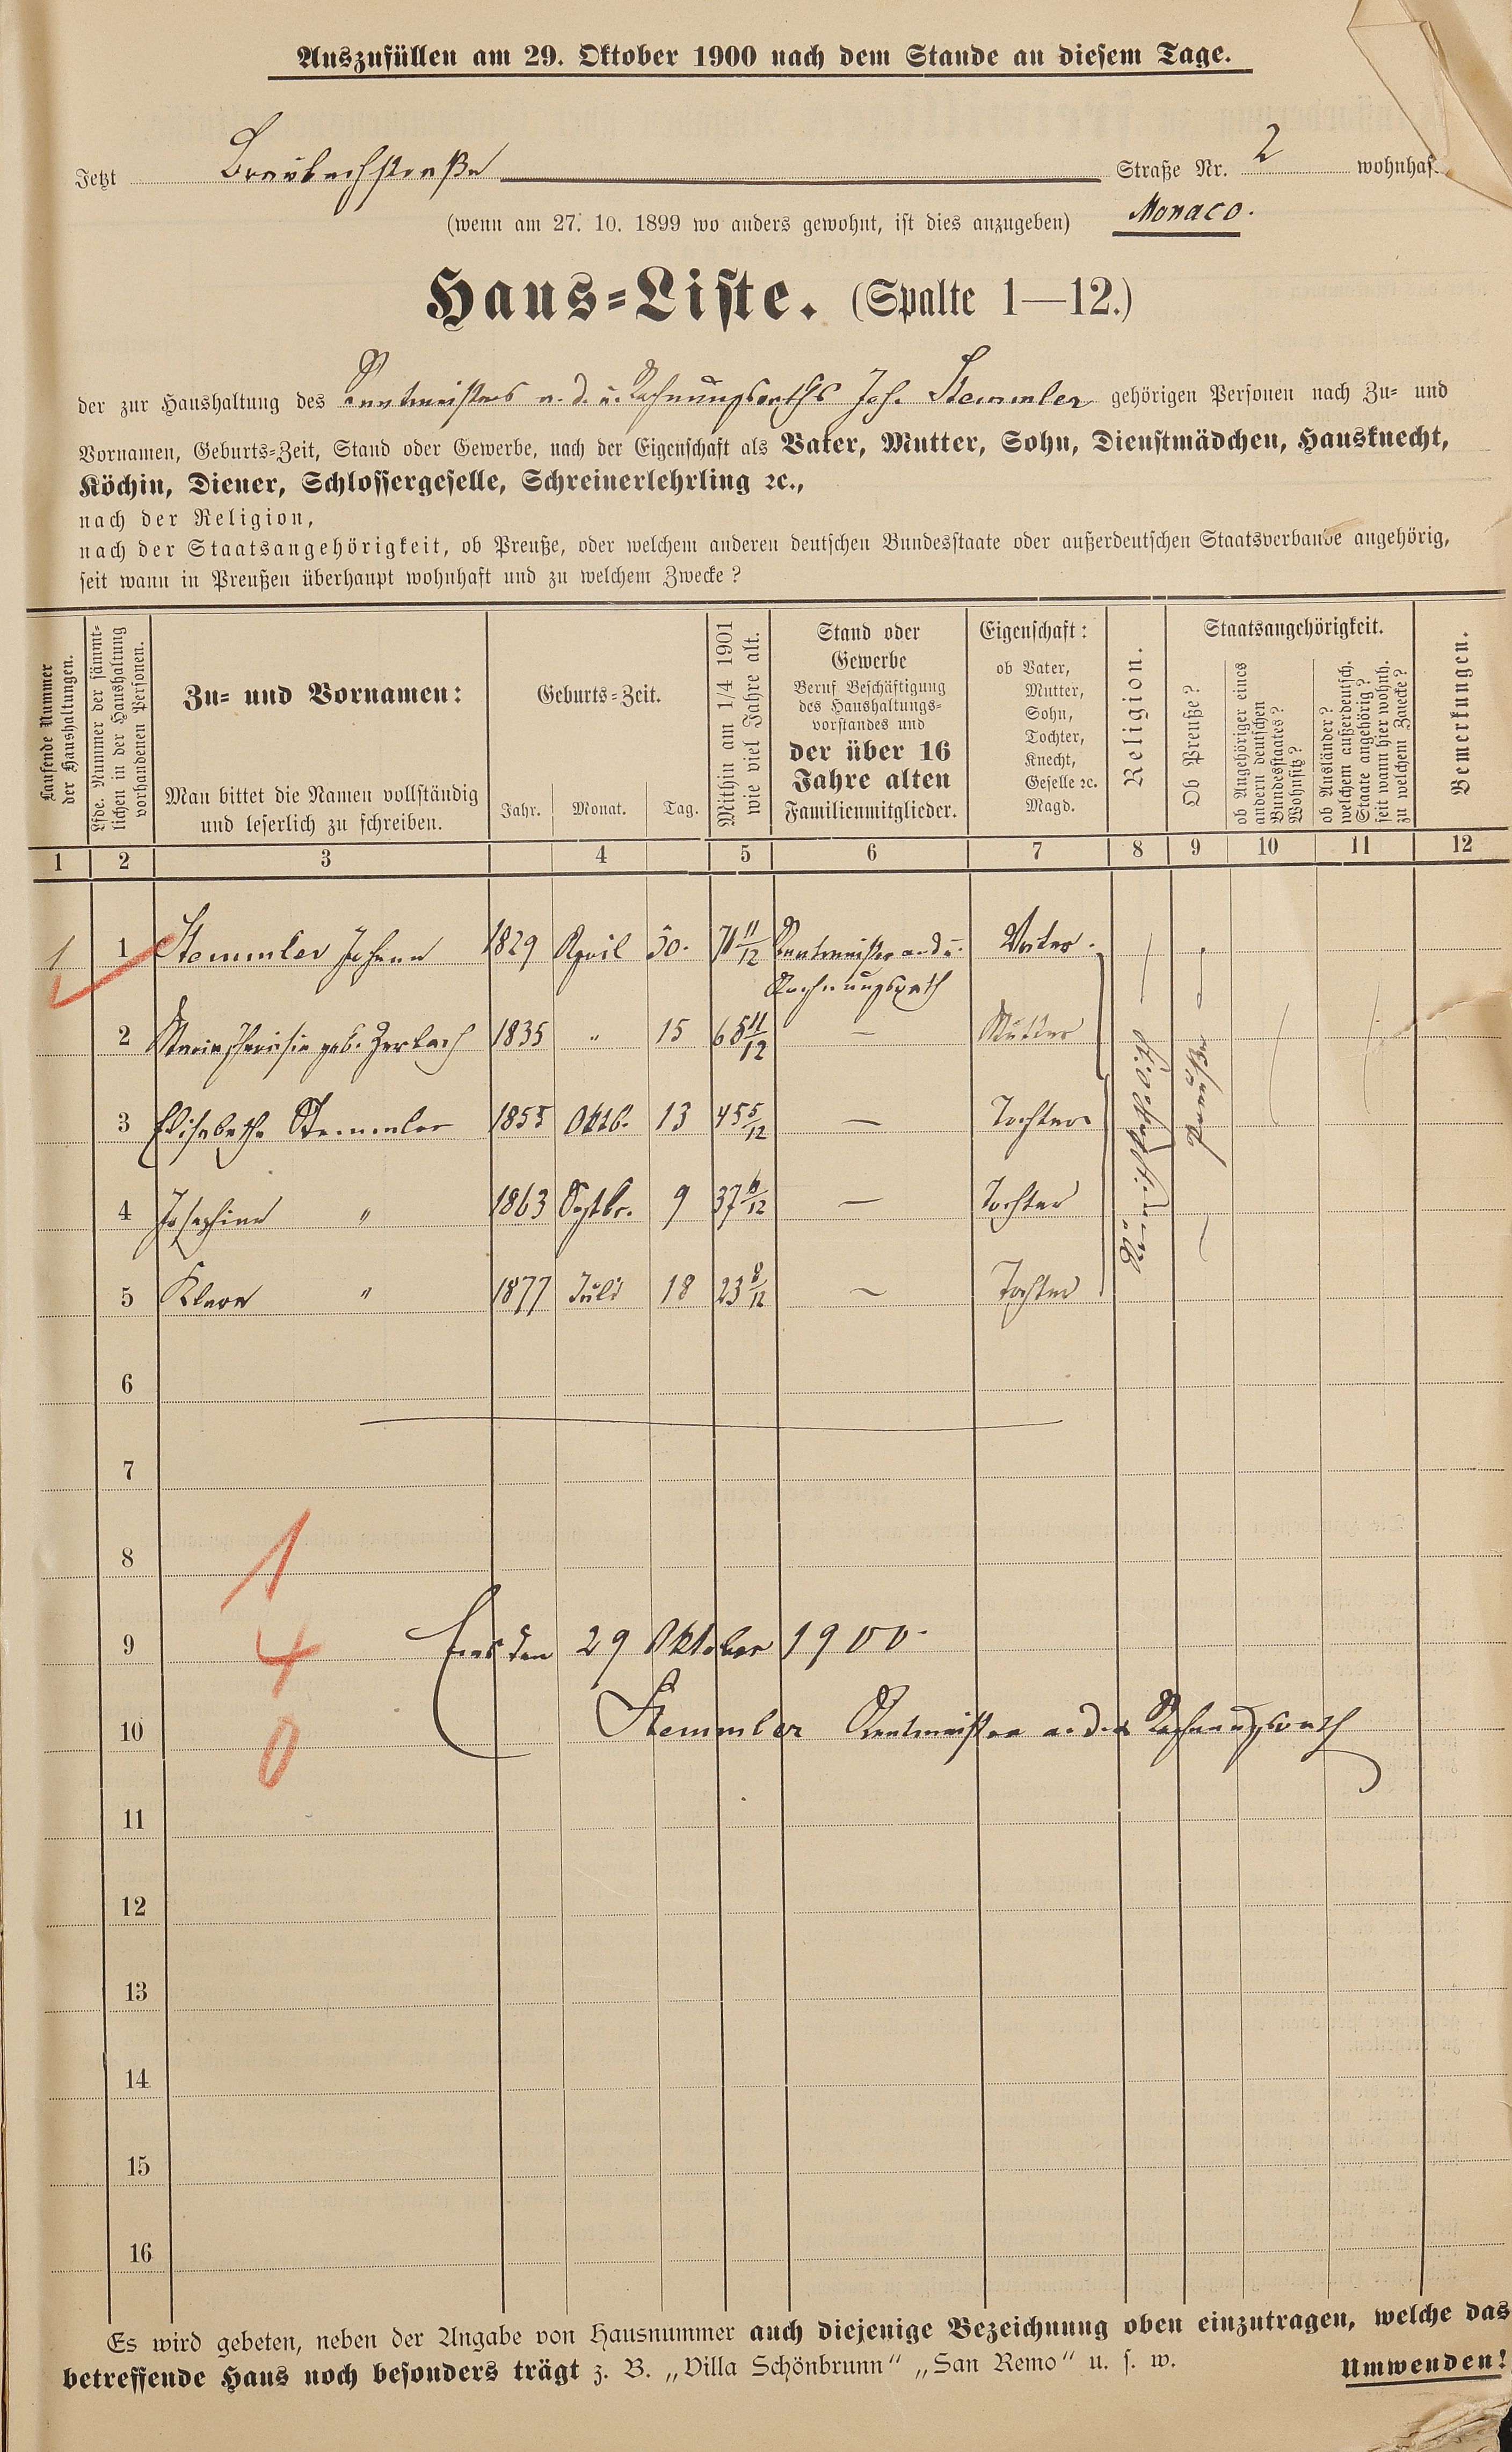 Auszufüllen am 29. Oktober 1900 nach dem Stande an diesem Tage.
Jetzt Braubachstraße Straße Nr. 2 wohnhaf
(wenn am 27. 10. 1899 wo anders gewohnt, ist dies anzugeben) Monaco.
Haus-Liste. (Spalte 1—12.)
der zur Haushaltung des Rentmeisters a. d. u. Rechnungsraths Joh. Stemmler gehörigen Personen nach Zu- und
Vornamen, Geburts-Zeit, Stand oder Gewerbe, nach der Eigenschaft als Vater, Mutter, Sohn, Dienstmädchen, Hausknecht,
Köchin, Diener, Schlossergeselle, Schreinerlehrling ꝛc.,
nach der Religion,
nach der Staatsangehörigkeit, ob Preuße, oder welchem anderen deutschen Bundesstaate oder außerdeutschen Staatsverbande angehörig,
seit wann in Preußen überhaupt wohnhaft und zu welchem Zwecke?
Laufende Nummer
der Haushaltungen.
Lfde. Nummer der sämmt-
lichen in der Haushaltung
vorhandenen Personen.
Zu- und Vornamen:
Man bittet die Namen vollständig
und leserlich zu schreiben.
Geburts-Zeit.
Jahr. Monat. Tag.
Mithin am 1/4 1901
wie viel Jahre alt.
Stand oder
Gewerbe
Beruf Beschäftigung
des Haushaltungs-
vorstandes und
der über 16
Jahre alten
Familienmitglieder.
Eigenschaft:
ob Vater,
Mutter,
Sohn,
Tochter,
Knecht,
Geselle ꝛc.
Magd.
Religion.
Staatsangehörigkeit.
Ob Preuße?
ob Angehöriger eines
andern deutschen
Bundesstaates?
Wohnsitz?
ob Ausländer?
welchem außerdeutsch.
Staate angehörig?
seit wann hier wohnh.
zu welchem Zwecke?
Bemerkungen.
1 2 3 4 5 6 7 8 9 10 11 12
1 1 Stemmler Johann 1829 April 30. 71 11/12 Rentmeister a. d. u. Vater.
Rechnungsrath
2 Maria Theresia geb. Zerbach 1835 " 15 65 11/12 — Mutter
3 Elisabetha Stemmler 1855 Oktb. 13 45 5/12 — Tochter
4 Josephine " 1863 Septbr. 9 37 6/12 — Tochter
5 Klara " 1877 Juli 18 23 8/12 — Tochter
Preuße
6
7
8
1
9
4
Ems den 29 Oktober 1900.
10
0
Stemmler Rentmeister a. d. u. Rechnungsrath
11
12
13
14
15
16
Es wird gebeten, neben der Angabe von Hausnummer auch diejenige Bezeichnung oben einzutragen, welche das
betreffende Haus noch besonders trägt z. B. „Villa Schönbrunn“ „San Remo“ u. s. w. Umwenden!